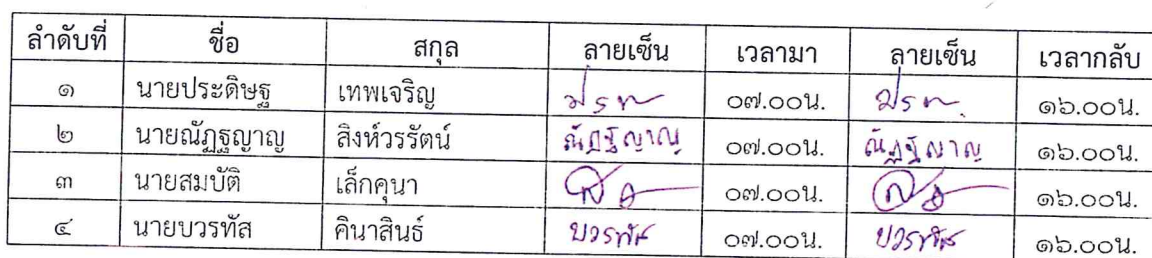 ลำดับที่ ชื่อ สกุล ลายเซ็น เวลามา ลายเซ็น เวลากลับ
๑ นายประดิษฐ เทพเจริญ ๐๗.๐๐น. ๑๖.๐๐น.
๒ นายณัฏฐญาญ สิงห์วรรัตน์ ณัฏฐญาญ ๐๗.๐๐น. ณัฏฐญาญ ๑๖.๐๐น.
๓ นายสมบัติ เล็กคุนา ๐๗.๐๐น. ๑๖.๐๐น.
๔ นายบวรทัส คินาสินธ์ บวรทัส ๐๗.๐๐น. บวรทัส ๑๖.๐๐น.